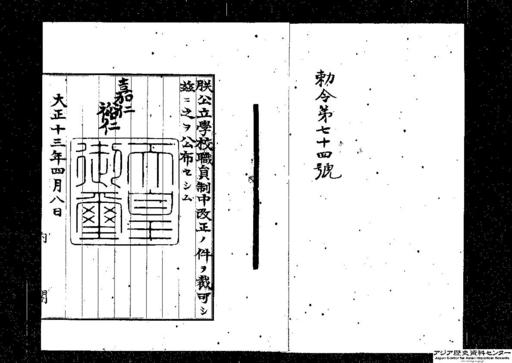 勅令第七十四號
朕公立學校職員制中改正ノ件ヲ裁可シ
茲ニ之ヲ公布セシム
嘉仁
裕仁
天皇
御璽
大正十三年四月八日
内閣
アジア歴史資料センター
Japan Center for Asian Historical Records